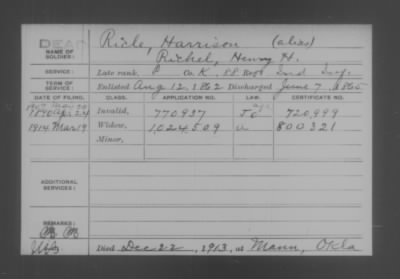 DEAD Ricle, Harrison (alias)
NAME OF SOLDIER: Richel, Henry H.
SERVICE: Late rank, P Co. K, 88 Reg't Ind Inf.
TERM OF SERVICE: Enlisted Aug 12, 1862 Discharged June 7, 1865
DATE OF FILING. CLASS. APPLICATION NO. LAW. CERTIFICATE NO.
1890 Apr 24 Invalid, 770937 720,999
1914 Mar 19 Widow, 1024509 800321
Minor,
ADDITIONAL SERVICES:
REMARKS:
Died Dec 22, 1913, at Mann, Okla